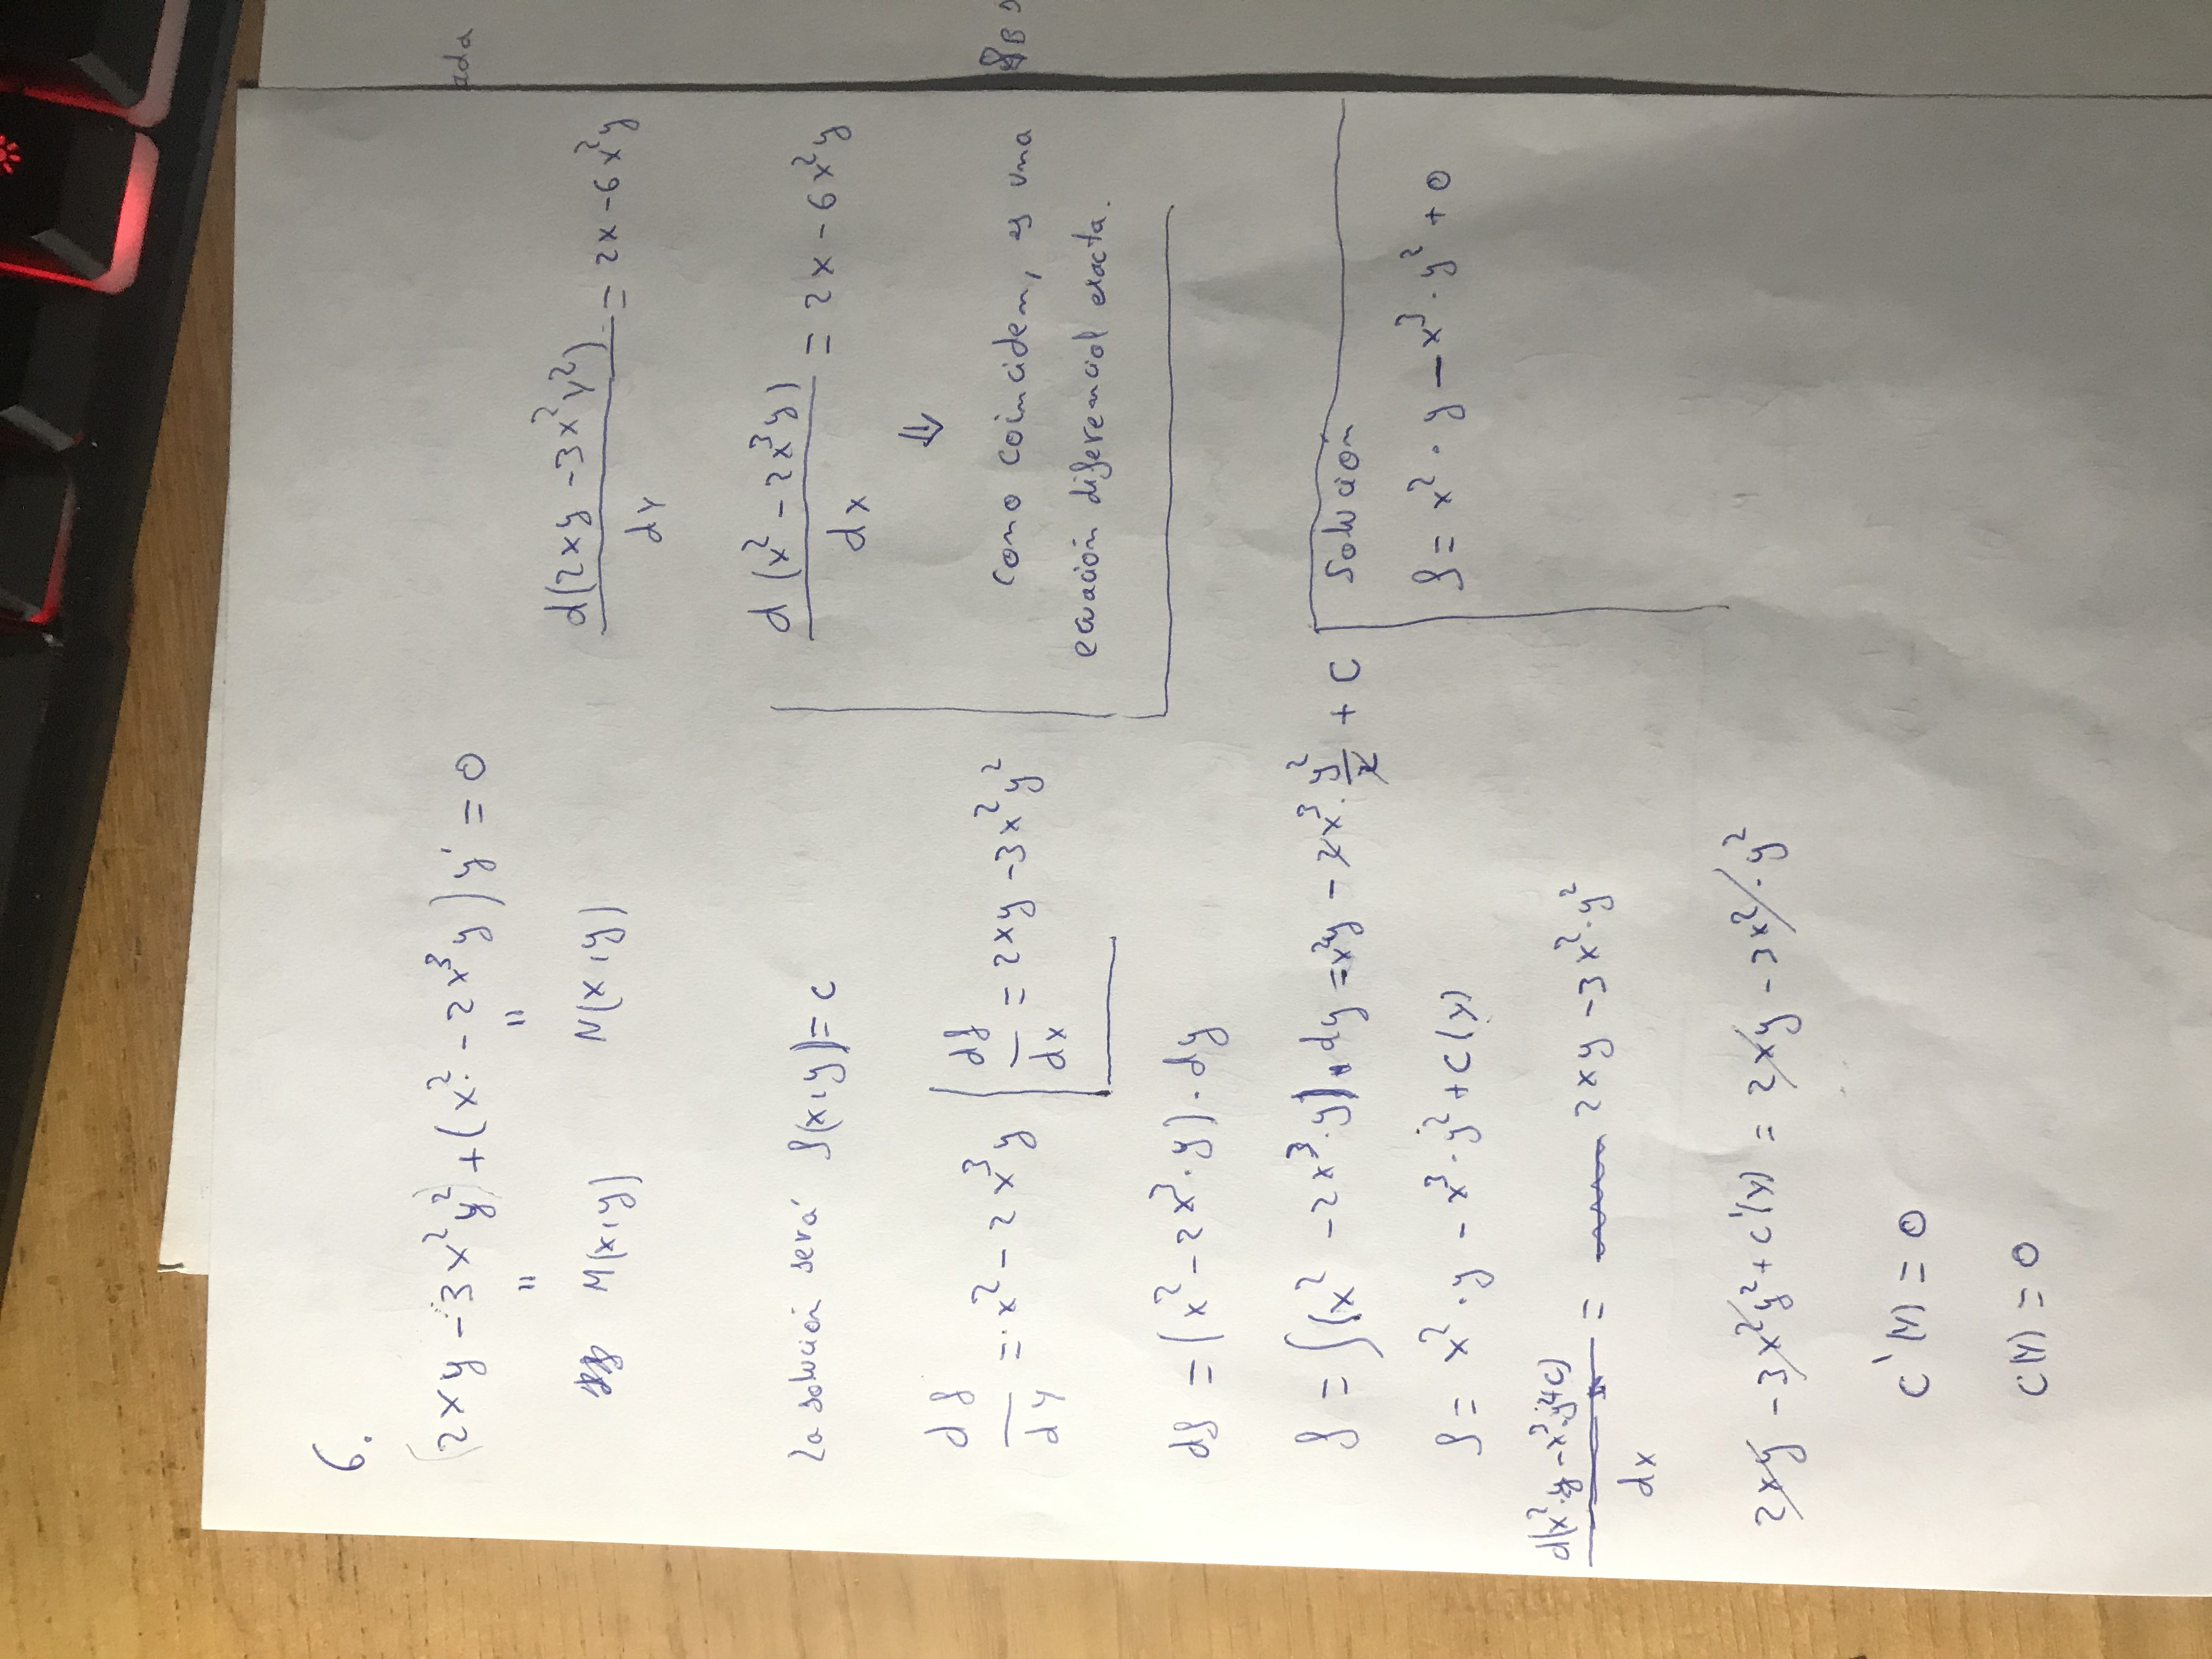 6.
(2xy - 3x²y²) + (x² - 2x³y) y' = 0
"
"
M(x,y)
N(x,y)
d(2xy - 3x²y²) / dy = 2x - 6x²y
d(x² - 2x³y) / dx = 2x - 6x²y
⇓
como coinciden, es una
ecuación diferencial exacta.
La solución será f(x,y) = c
df / dy = x² - 2x³y
df / dx = 2xy - 3x²y²
df = (x² - 2x³·y)·dy
f = ∫(x² - 2x³·y)·dy = x²y - 2x³·y²/2 + C
f = x²·y - x³·y² + C(x)
d(x²·y - x³·y² + C) / dx = 2xy - 3x²·y²
2xy - 3x²y² + C'(x) = 2xy - 3x²·y²
C'(x) = 0
C(x) = 0
Solución
f = x²·y - x³·y² + 0
ada